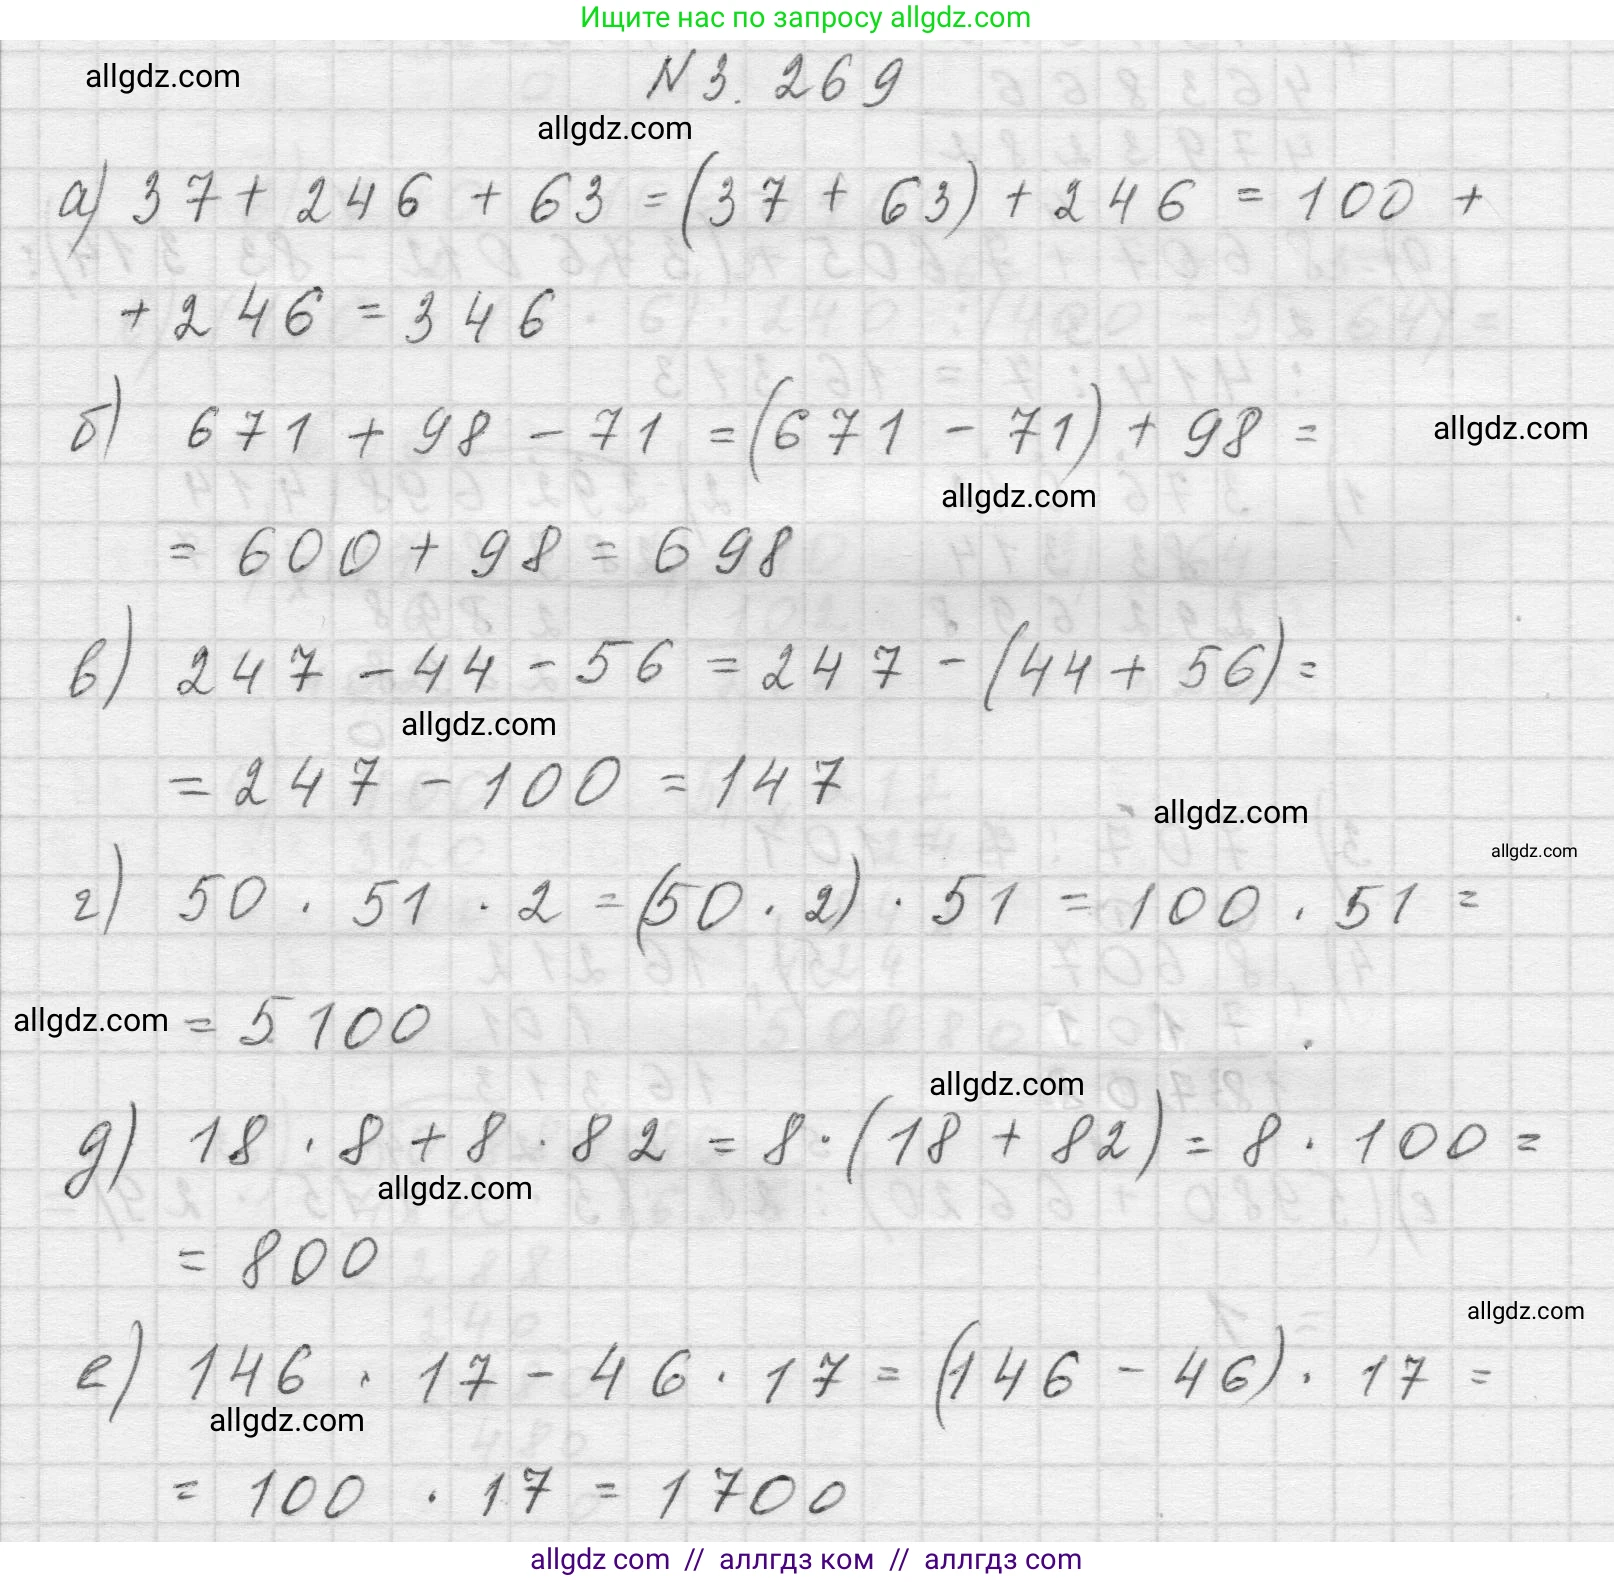 Ищите нас по запросу allgdz.com
allgdz.com
N 3. 269
allgdz.com
а) 37 + 246 + 63 = (37 + 63) + 246 = 100 +
+ 246 = 346
б) 671 + 98 - 71 = (671 - 71) + 98 =
allgdz.com
allgdz.com
= 600 + 98 = 698
в) 247 - 44 - 56 = 247 - (44 + 56) =
allgdz.com
= 247 - 100 = 147
allgdz.com
allgdz.com
г) 50 · 51 · 2 = (50 · 2) · 51 = 100 · 51 =
allgdz.com
= 5100
allgdz.com
д) 18 · 8 + 8 · 82 = 8 · (18 + 82) = 8 · 100 =
allgdz.com
= 800
allgdz.com
е) 146 · 17 - 46 · 17 = (146 - 46) · 17 =
allgdz.com
= 100 · 17 = 1700
allgdz com // аллгдз ком // аллгдз com